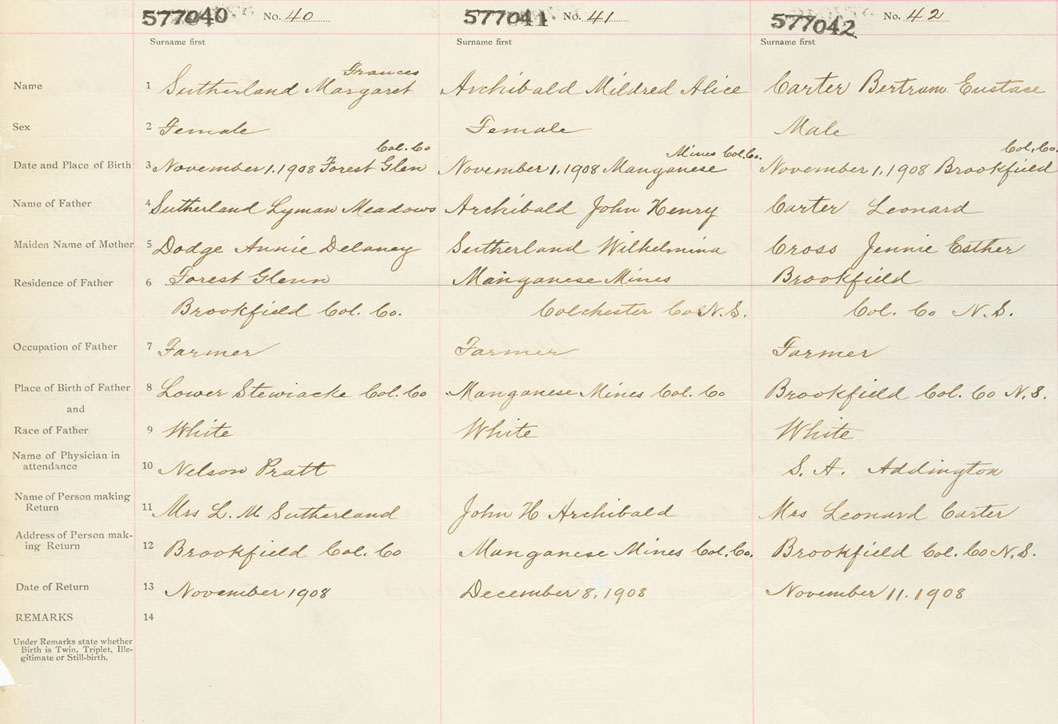 577040 No. 40 577041 No. 41 577042 No. 42
Surname first Surname first Surname first
Frances
Name 1 Sutherland Margaret Archibald Mildred Alice Carter Bertram Eustace
Sex 2 Female Female Male
Col. Co Mines Col. Co. Col. Co.
Date and Place of Birth 3 November 1, 1908 Forest Glen November 1, 1908 Manganese November 1, 1908 Brookfield
Name of Father 4 Sutherland Lyman Meadows Archibald John Henry Carter Leonard
Maiden Name of Mother 5 Dodge Annie Delaney Sutherland Wilhelmina Cross Jennie Esther
Residence of Father 6 Forest Glenn Manganese Mines Brookfield
Brookfield Col. Co. Colchester Co N.S. Col. Co N.S.
Occupation of Father 7 Farmer Farmer Farmer
Place of Birth of Father 8 Lower Stewiacke Col. Co Manganese Mines Col. Co Brookfield Col. Co N.S.
and
Race of Father 9 White White White
Name of Physician in
attendance 10 Nelson Pratt S. A. Addington
Name of Person making
Return 11 Mrs L. M Sutherland John H Archibald Mrs Leonard Carter
Address of Person mak-
ing Return 12 Brookfield Col. Co Manganese Mines Col. Co. Brookfield Col. Co N.S.
Date of Return 13 November 1908 December 8, 1908 November 11. 1908
REMARKS 14
Under Remarks state whether
Birth is Twin, Triplet, Ille-
gitimate or Still-birth.